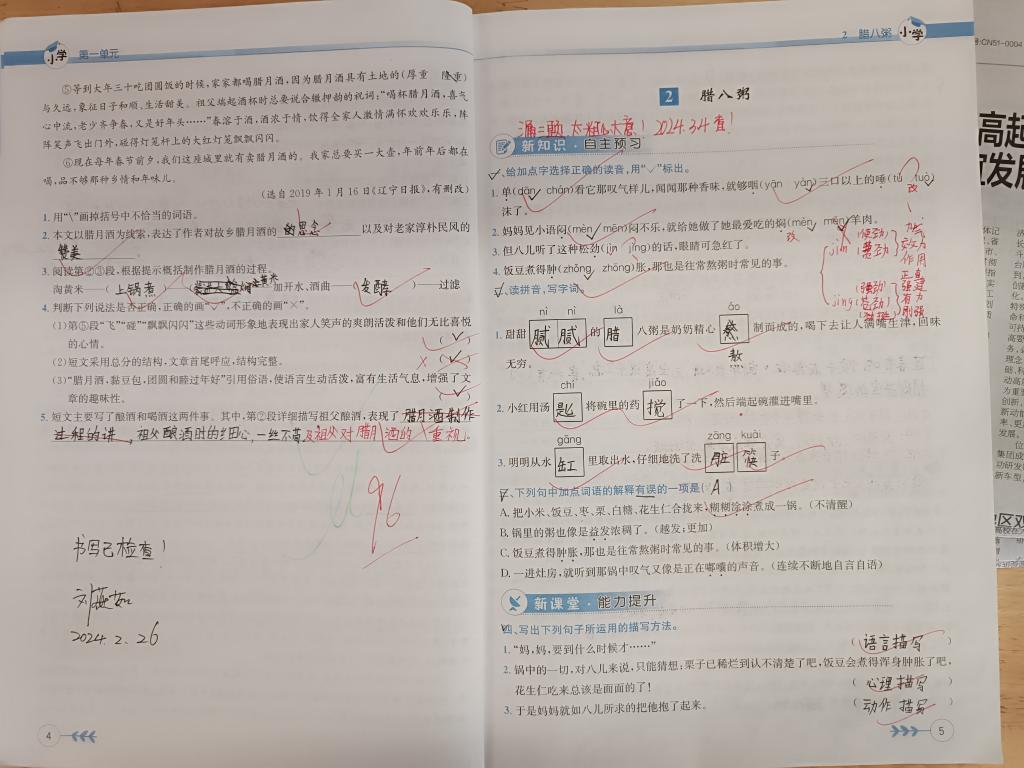 小学 第一单元
⑤等到大年三十吃团圆饭的时候,家家都喝腊月酒,因为腊月酒具有土地的(厚重 隆重)
与久远,象征日子和顺、生活甜美。祖父端起酒杯时总要说合辙押韵的祝词:“喝杯腊月酒,喜气
心中流,老少齐争春,又是好年头……”春溶于酒,酒浓于情,饮得全家人激情满怀欢欢乐乐,阵
阵笑声飞出门外,碰得灯笼杆上的大红灯笼飘飘闪闪。
⑥现在每年春节前夕,我们这座城里就有卖腊月酒的。我家总要买一大壶,年前年后都在
喝,品不够那种乡情和年味儿。
(选自2019年1月16日《辽宁日报》,有删改)
1. 用“\”画掉括号中不恰当的词语。
2. 本文以腊月酒为线索,表达了作者对故乡腊月酒的 的思念 以及对老家淳朴民风的
赞美。
3. 阅读第②③段,根据提示概括制作腊月酒的过程。
淘黄米——(上锅煮)——( )加开水、酒曲——(发酵)——过滤
4. 判断下列说法是否正确,正确的画“✓”,不正确的画“×”。
(1)第⑤段“飞”“碰”“飘飘闪闪”这些动词形象地表现出家人笑声的爽朗活泼和他们无比喜悦
的心情。 (✓)
(2)短文采用总分的结构,文章首尾呼应,结构完整。 ×(✓)
(3)“腊月酒,黏豆包,团圆和睦过年好”引用俗语,使语言生动活泼,富有生活气息,增强了文
章的趣味性。 (✓)
5. 短文主要写了酿酒和喝酒这两件事。其中,第②段详细描写祖父酿酒,表现了腊月酒制作
过程的讲,祖父酿酒时的细心,一丝不苟及祖父对腊月酒的重视。
96
书写已检查!
2024.2.26
4
2 腊八粥 小学
2 腊八粥
2024.3.4查!
新知识·自主预习
一、给加点字选择正确的读音,用“✓”标出。
1. 单(dān chán)看它那叹气样儿,闻闻那种香味,就够咽(yān yàn)三口以上的唾(tù tuò)
沫了。
改
2. 妈妈见小语闷(mēn mèn)闷不乐,就给她做了她最爱吃的焖(mèn mēn)羊肉。
改
3. 但八儿听了这种松劲(jìn jìng)的话,眼睛可急红了。
4. 饭豆煮得肿(zhǒng zhōng)胀,那也是往常熬粥时常见的事。
jìn
jìng
力气
效力
作用
正直
强健
有力
刚强
二、读拼音,写字词。
nì nì là áo
1. 甜甜腻腻的腊八粥是奶奶精心熬制而成的,喝下去让人满嘴生津,回味
无穷。
熬
chí jiǎo
2. 小红用汤匙将碗里的药搅了一下,然后端起碗灌进嘴里。
gāng zāng kuài
3. 明明从水缸里取出水,仔细地洗了洗脏筷子。
三、下列句中加点词语的解释有误的一项是( A )
A. 把小米、饭豆、枣、栗、白糖、花生仁合拢来,糊糊涂涂煮成一锅。(不清醒)
B. 锅里的粥也像是益发浓稠了。(越发;更加)
C. 饭豆煮得肿胀,那也是往常熬粥时常见的事。(体积增大)
D. 一进灶房,就听到那锅中叹气又像是正在嘟囔的声音。(连续不断地自言自语)
新课堂·能力提升
四、写出下列句子所运用的描写方法。
1. “妈,妈,要到什么时候才……” (语言描写)
2. 锅中的一切,对八儿来说,只能猜想:栗子已稀烂到认不清楚了吧,饭豆会煮得浑身肿胀了吧,
花生仁吃来总该是面面的了! (心理描写)
3. 于是妈妈就如八儿所求的把他抱了起来。 (动作描写)
5
号:CN51-0004